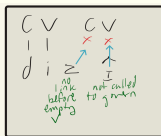 C V C V
x x
d i z I
no link before empty V
not called to govern